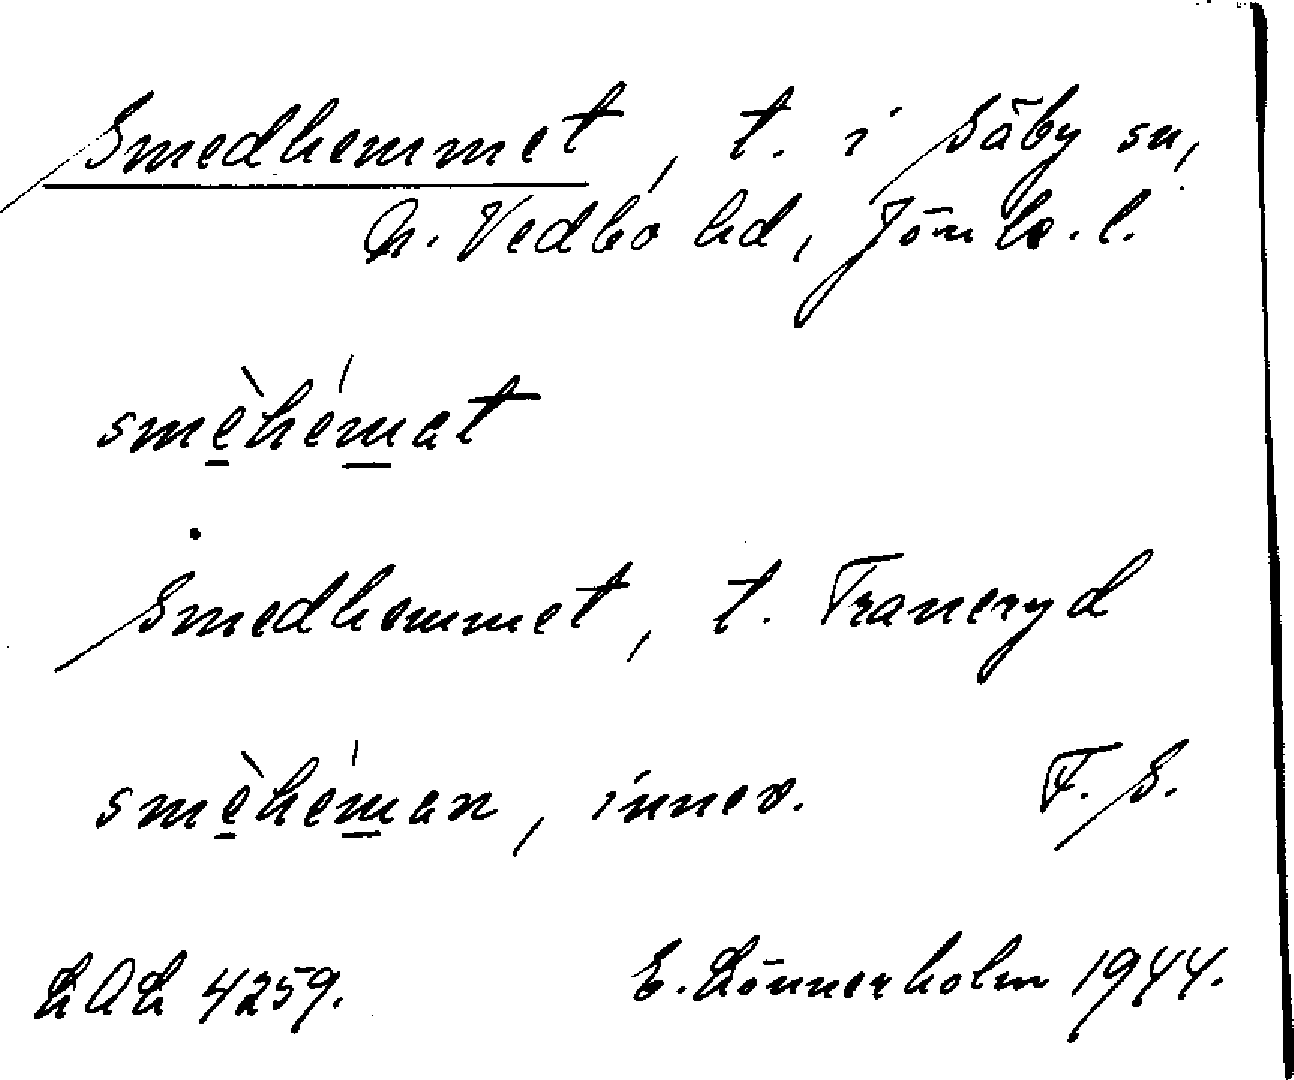 Smedhemmet, t. i Säby sn,
N. Vedbo hd, Jönk. l.
smèhémat
Smedhemmet, t. Traneryd
smèhéman, innev. F. S.
LAL 4259. E. Lönnerholm 1944.